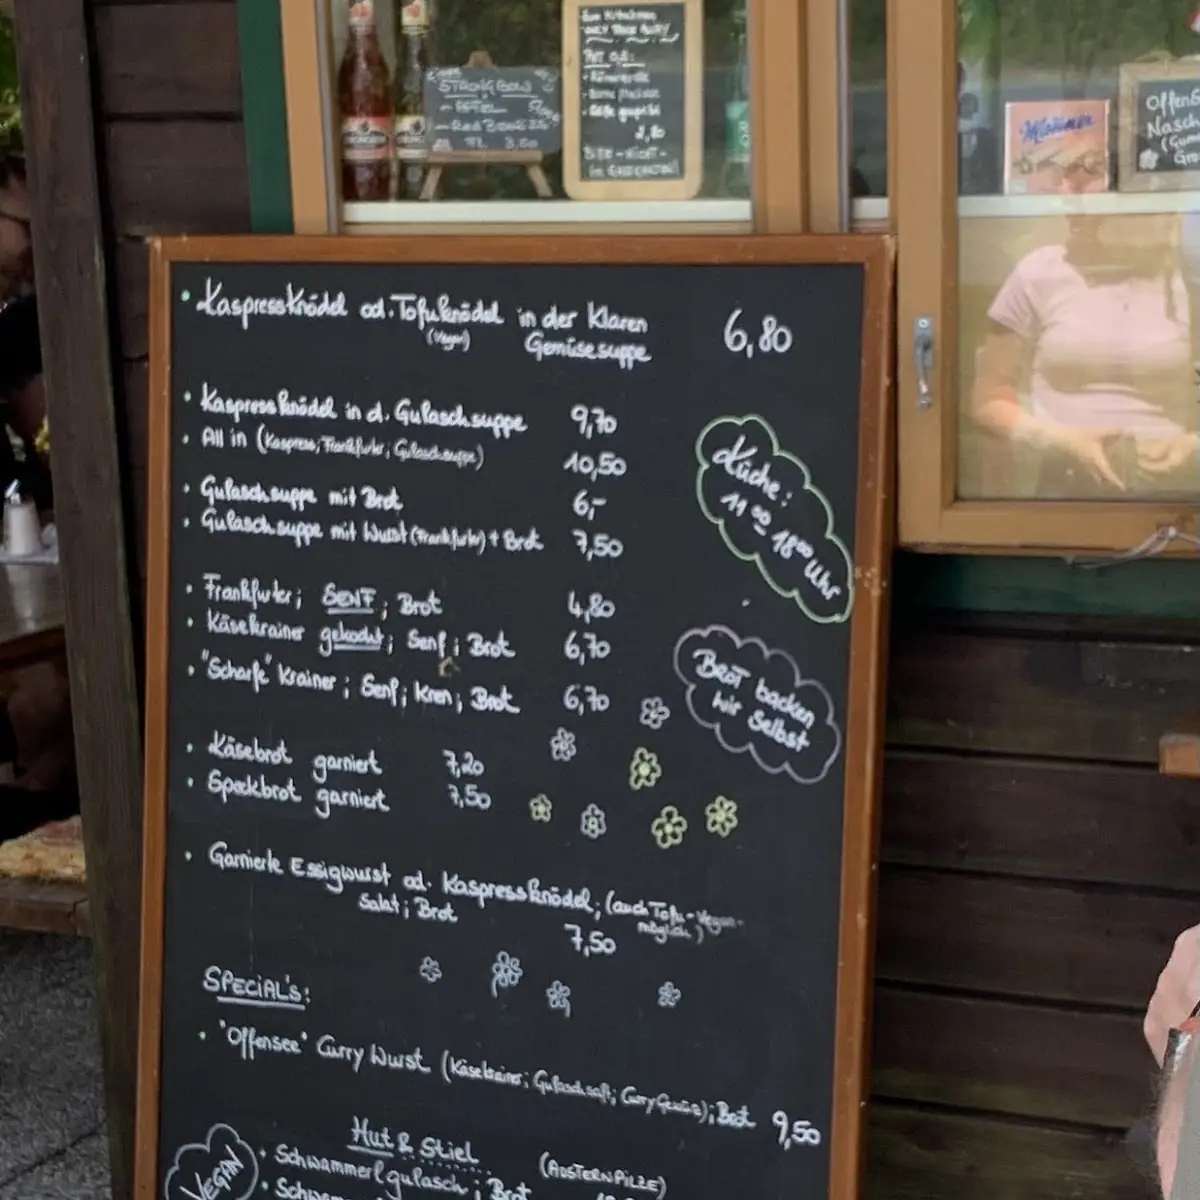 STRONGBOW
- APFEL
0,8:
2,80
BITTE - NICHT -
3,50
Offen
Nasch
• Kaspressknödel od. Tofuknödel in der Klaren 6,80
(Vegan) Gemüsesuppe
• Kaspressknödel in d. Gulaschsuppe 9,70
• All in (Kaspress; Frankfurter; Gulaschsuppe) 10,50
• Gulaschsuppe mit Brot 6,-
• Gulaschsuppe mit Wurst (Frankfurter) + Brot 7,50
Küche:
11 00 - 18 00 Uhr
• Frankfurter; SENF; Brot 4,80
• Käsekrainer gekocht; Senf; Brot 6,70
• "Scharfe" Krainer; Senf; Kren; Brot 6,70
Brot backen
wir Selbst
• Käsebrot garniert 7,20
• Speckbrot garniert 7,50
• Garnierte Essigwurst od. Kaspressknödel; (auch Tofu-Vegan-
Salat; Brot möglich)
7,50
SPECIAL'S:
• "Offensee" Curry Wurst (Käsekrainer; Gulaschsaft; Curry Gewürz); Brot 9,50
Hut & Stiel
(AUSTERNPILZE)
VEGAN
• Schwammerlgulasch; Brot